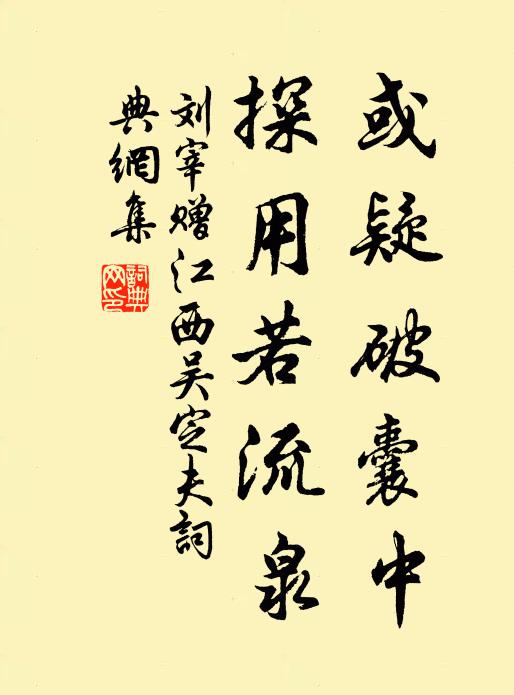 或疑破囊中
探用若流泉
刘宰赠江西吴定夫詞
典網集
詞典網印